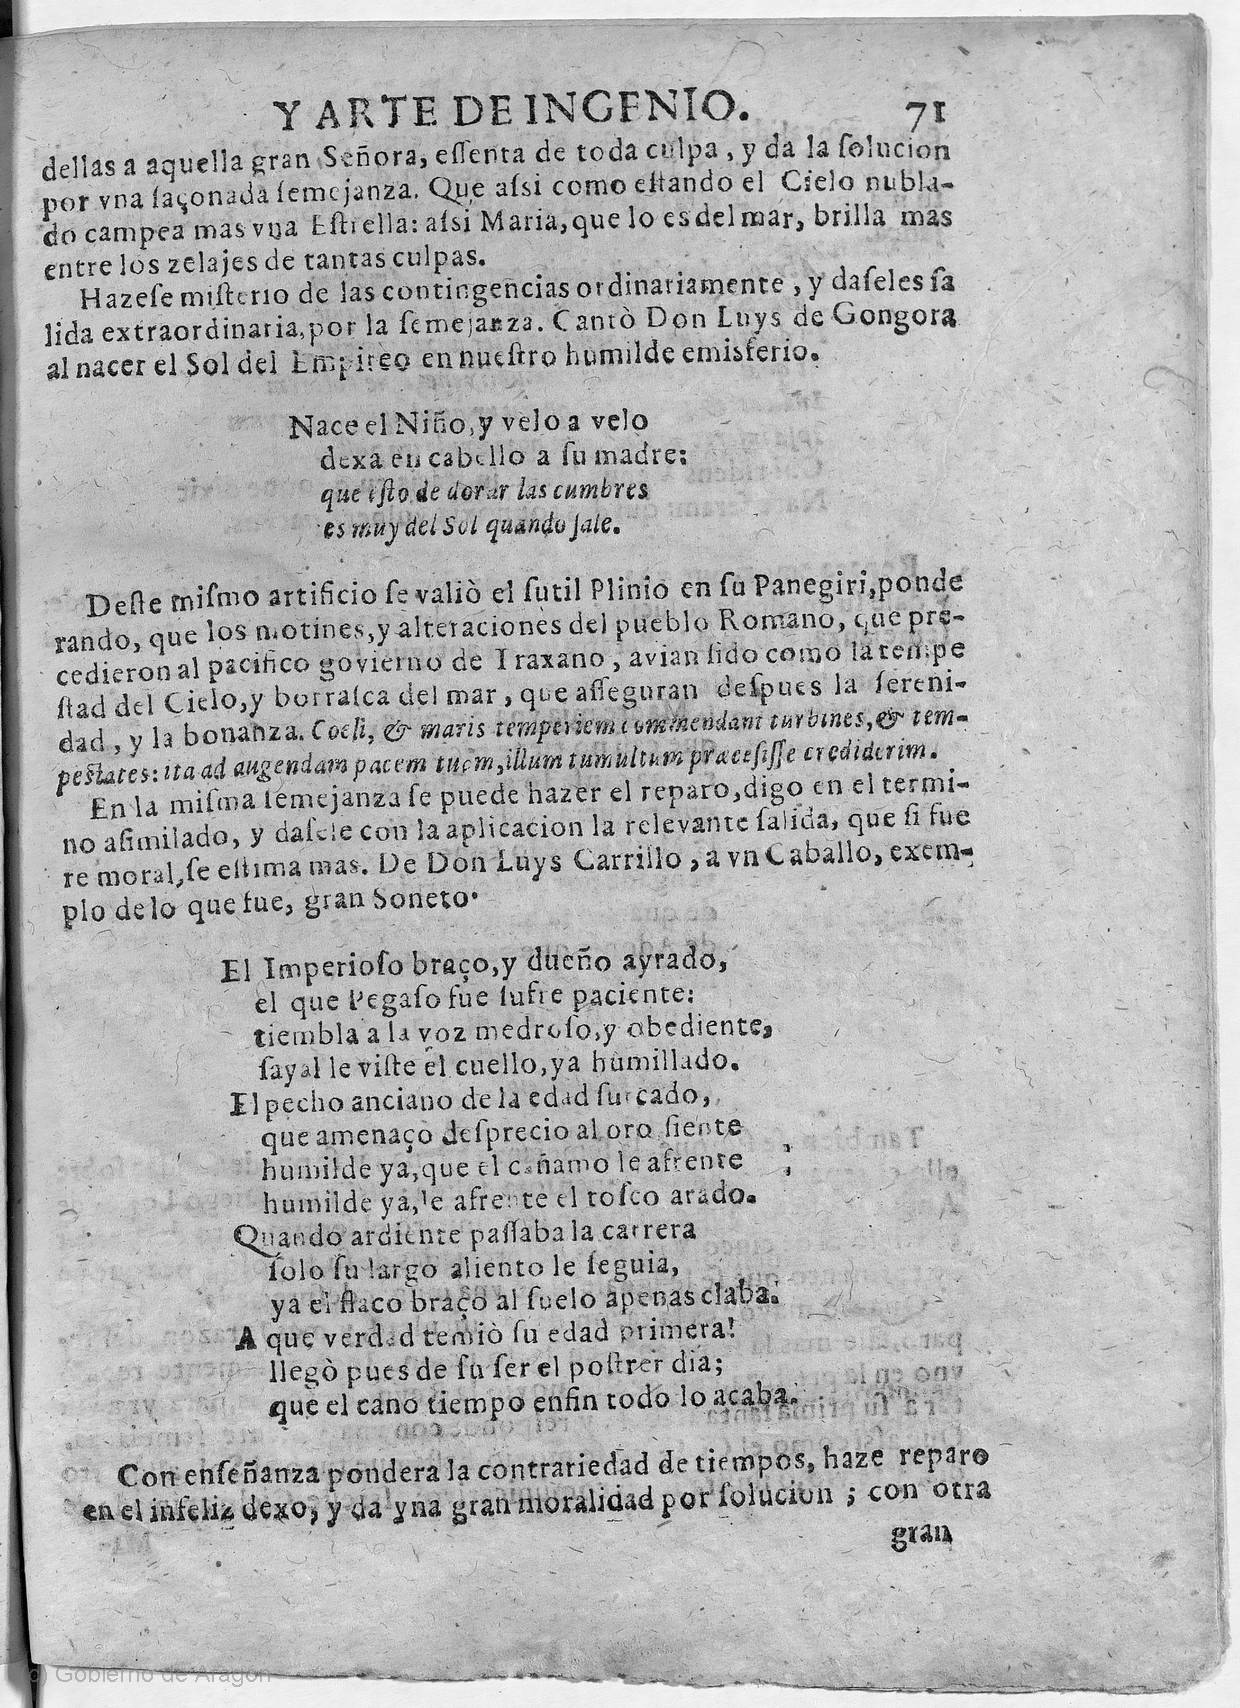 Y ARTE DE INGENIO. 71
dellas a aquella gran Señora, eſſenta de toda culpa, y da la ſolucion
por vna ſaçonada ſemejanza. Que aſsi como eſtando el Cielo nubla-
do campea mas vna Eſtrella: aſsi Maria, que lo es del mar, brilla mas
entre los zelajes de tantas culpas.
Hazeſe miſterio de las contingencias ordinariamente, y daſeles ſa
lida extraordinaria, por la ſemejanza. Cantò Don Luys de Gongora
al nacer el Sol del Empireo en nueſtro humilde emisferio.
Nace el Niño, y velo a velo
dexa en cabello a ſu madre:
que eſto de dorar las cumbres
es muy del Sol quando ſale.
Deſte miſmo artificio ſe valiò el ſutil Plinio en ſu Panegiri, ponde
rando, que los motines, y alteraciones del pueblo Romano, que pre-
cedieron al pacifico govierno de Traxano, avian ſido como la tempe
ſtad del Cielo, y borraſca del mar, que aſſeguran deſpues la ſereni-
dad, y la bonanza. Coeli, & maris temperiem commendant turbines, & tem-
peſtates: ita ad augendam pacem tuam, illum tumultum præceſiſſe crediderim.
En la miſma ſemejanza ſe puede hazer el reparo, digo en el termi-
no aſimilado, y daſele con la aplicacion la relevante ſalida, que ſi fue
re moral, ſe eſtima mas. De Don Luys Carrillo, a vn Caballo, exem-
plo de lo que fue, gran Soneto.
El Imperioſo braço, y dueño ayrado,
el que Pegaſo fue ſufre paciente:
tiembla a la voz medroſo, y obediente,
ſayal le viſte el cuello, ya humillado.
El pecho anciano de la edad ſurcado,
que amenaçò deſprecio al oro ſiente
humilde ya, que el cañamo le afrente;
humilde ya, le afrente el toſco arado.
Quando ardiente paſſaba la carrera
ſolo ſu largo aliento le ſeguia,
ya el flaco braço al ſuelo apenas claba.
A que verdad temiò ſu edad primera!
llegò pues de ſu ſer el poſtrer dia;
que el cano tiempo enfin todo lo acaba.
Con enſeñanza pondera la contrariedad de tiempos, haze reparo
en el infeliz dexo, y da vna gran moralidad por ſolucion; con otra
gran
(c) Gobierno de Aragón